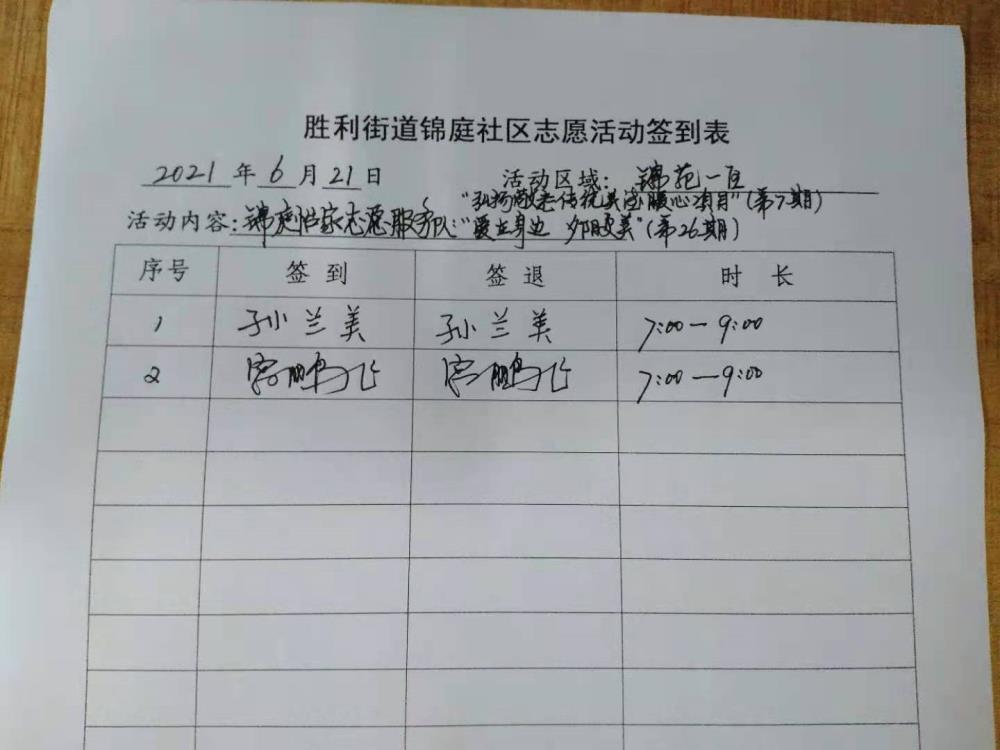 胜利街道锦庭社区志愿活动签到表
2021年6月21日 活动区域:锦苑一区
"弘扬敬老传统美德暖心项目"(第7期)
活动内容:锦庭怡家志愿服务队:"爱在身边 夕阳更美"(第26期)
序号 签到 签退 时长
1 孙兰美 孙兰美 7:00—9:00
2 鹏飞 鹏飞 7:00—9:00